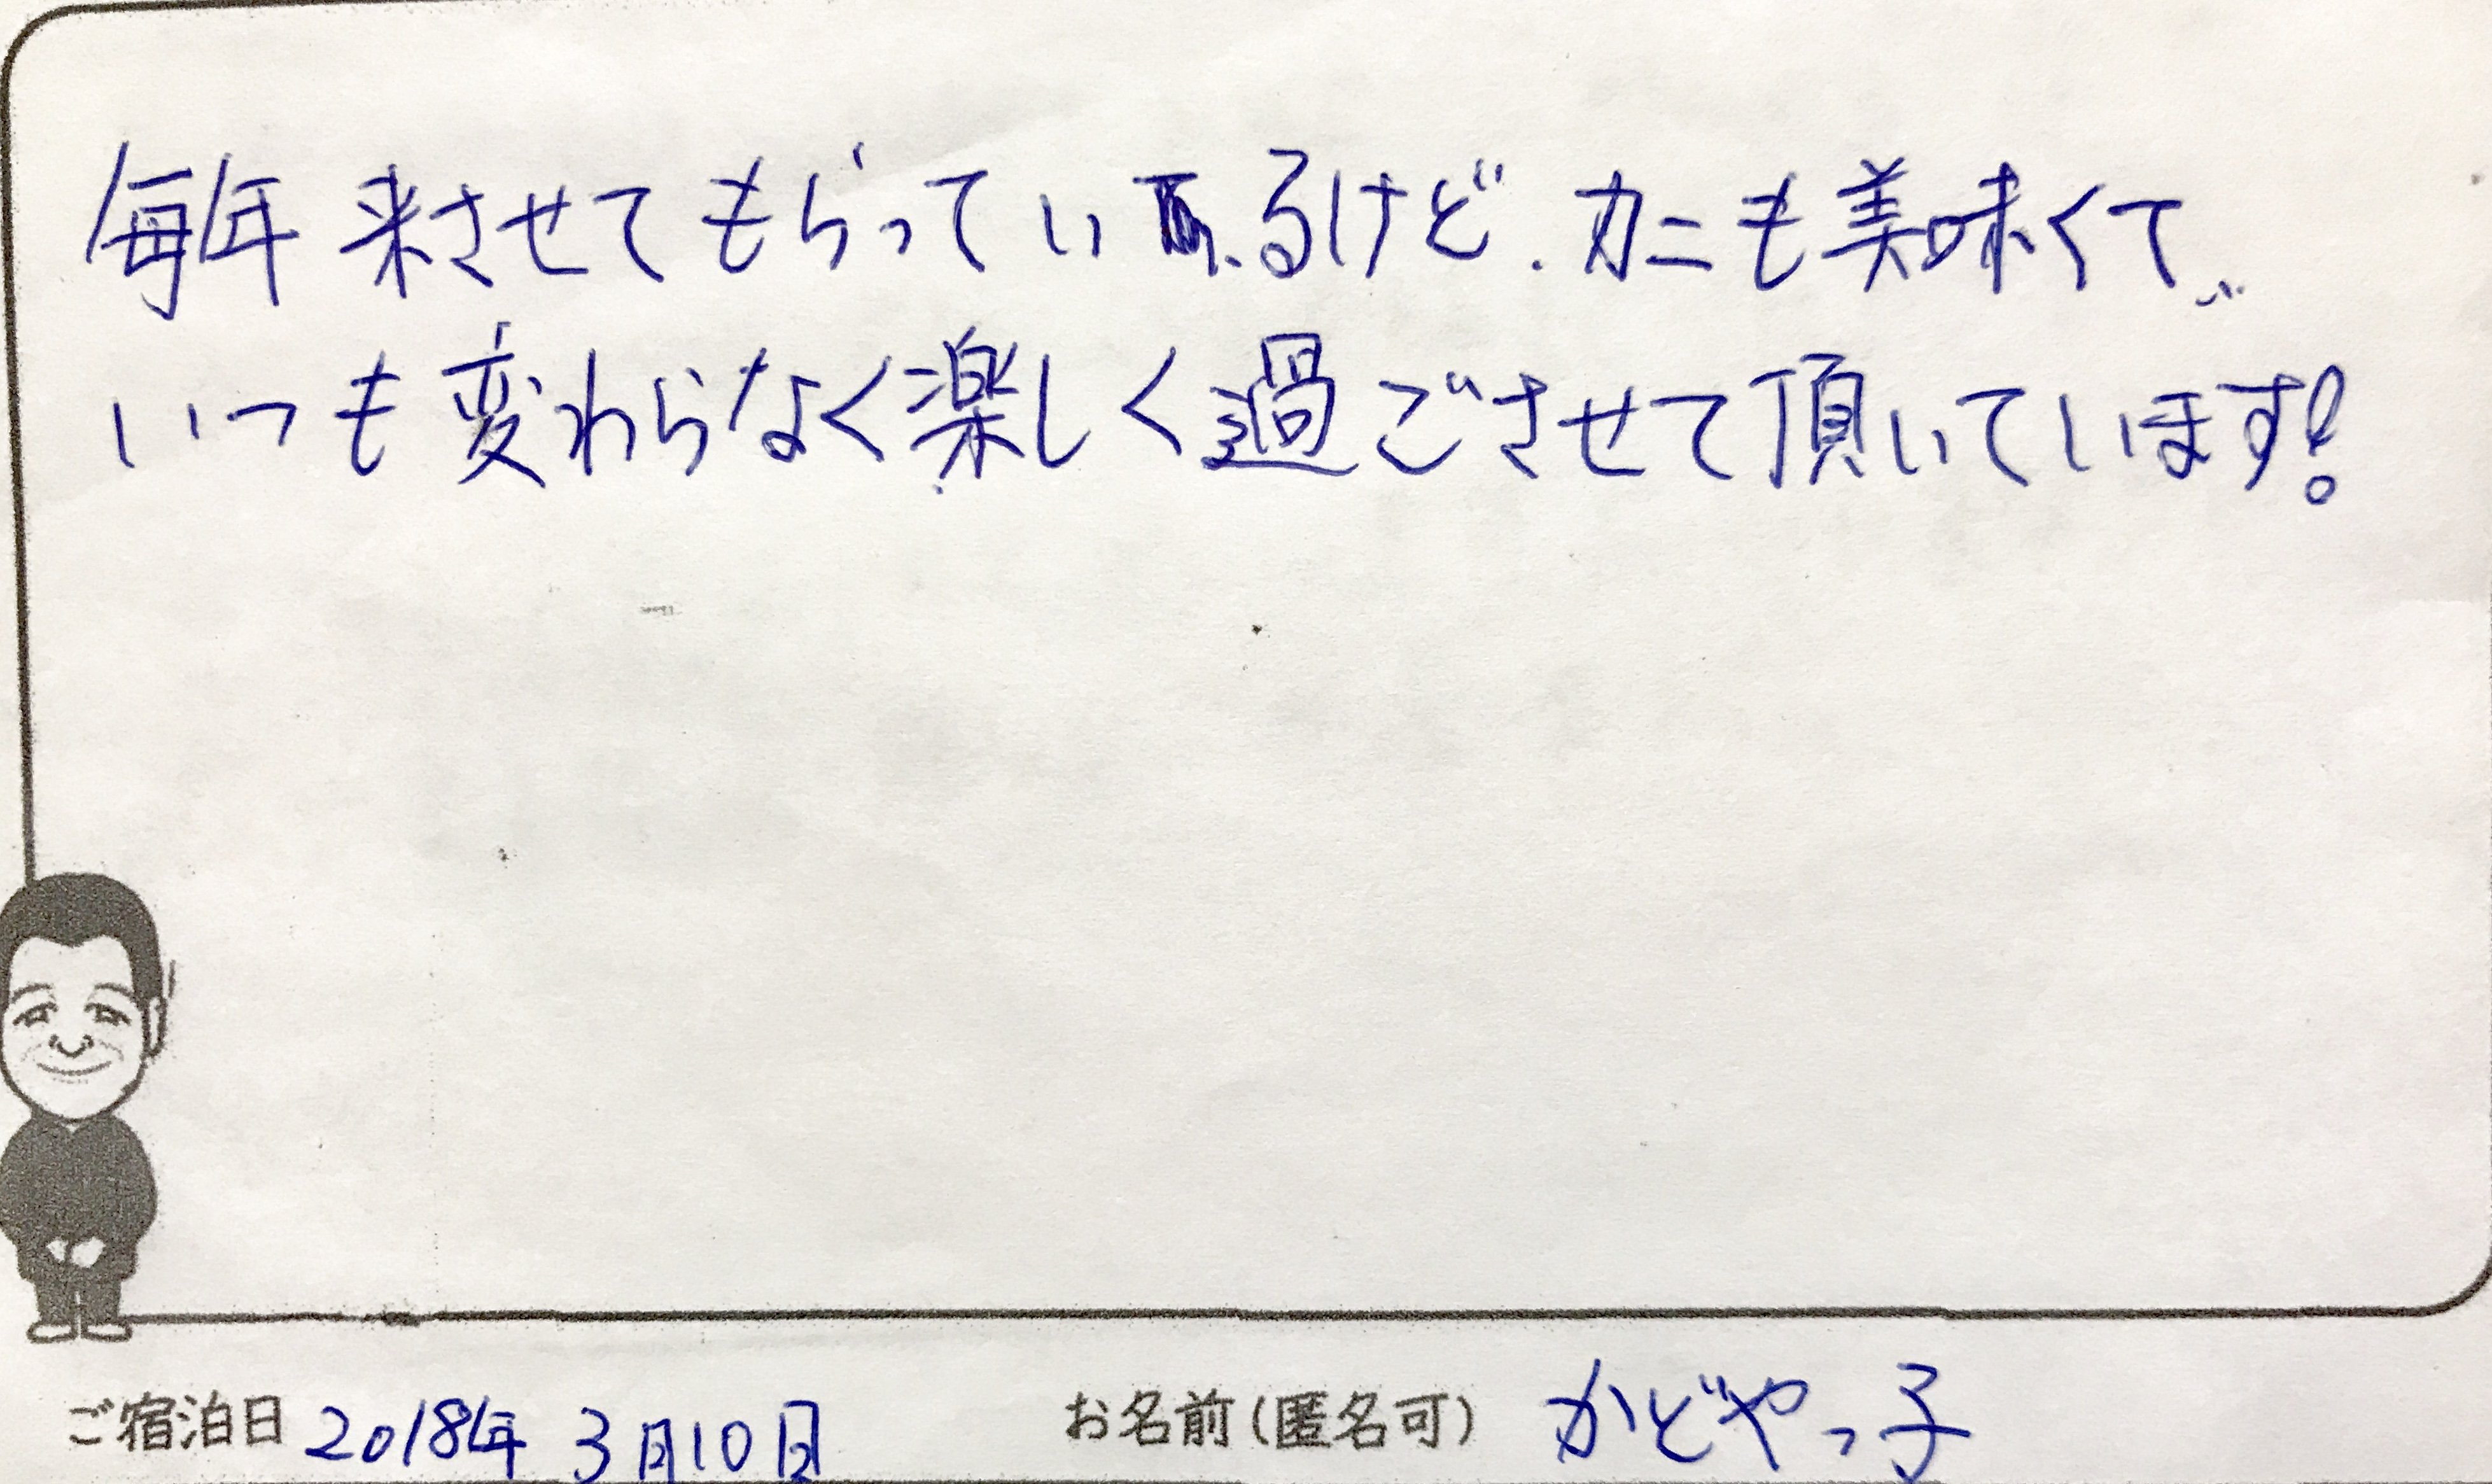 毎年来させてもらっているけど、カニも美味くて、
いつも変わらなく楽しく過ごさせて頂いています!
ご宿泊日 2018年 3月10日
お名前(匿名可) かどやっ子